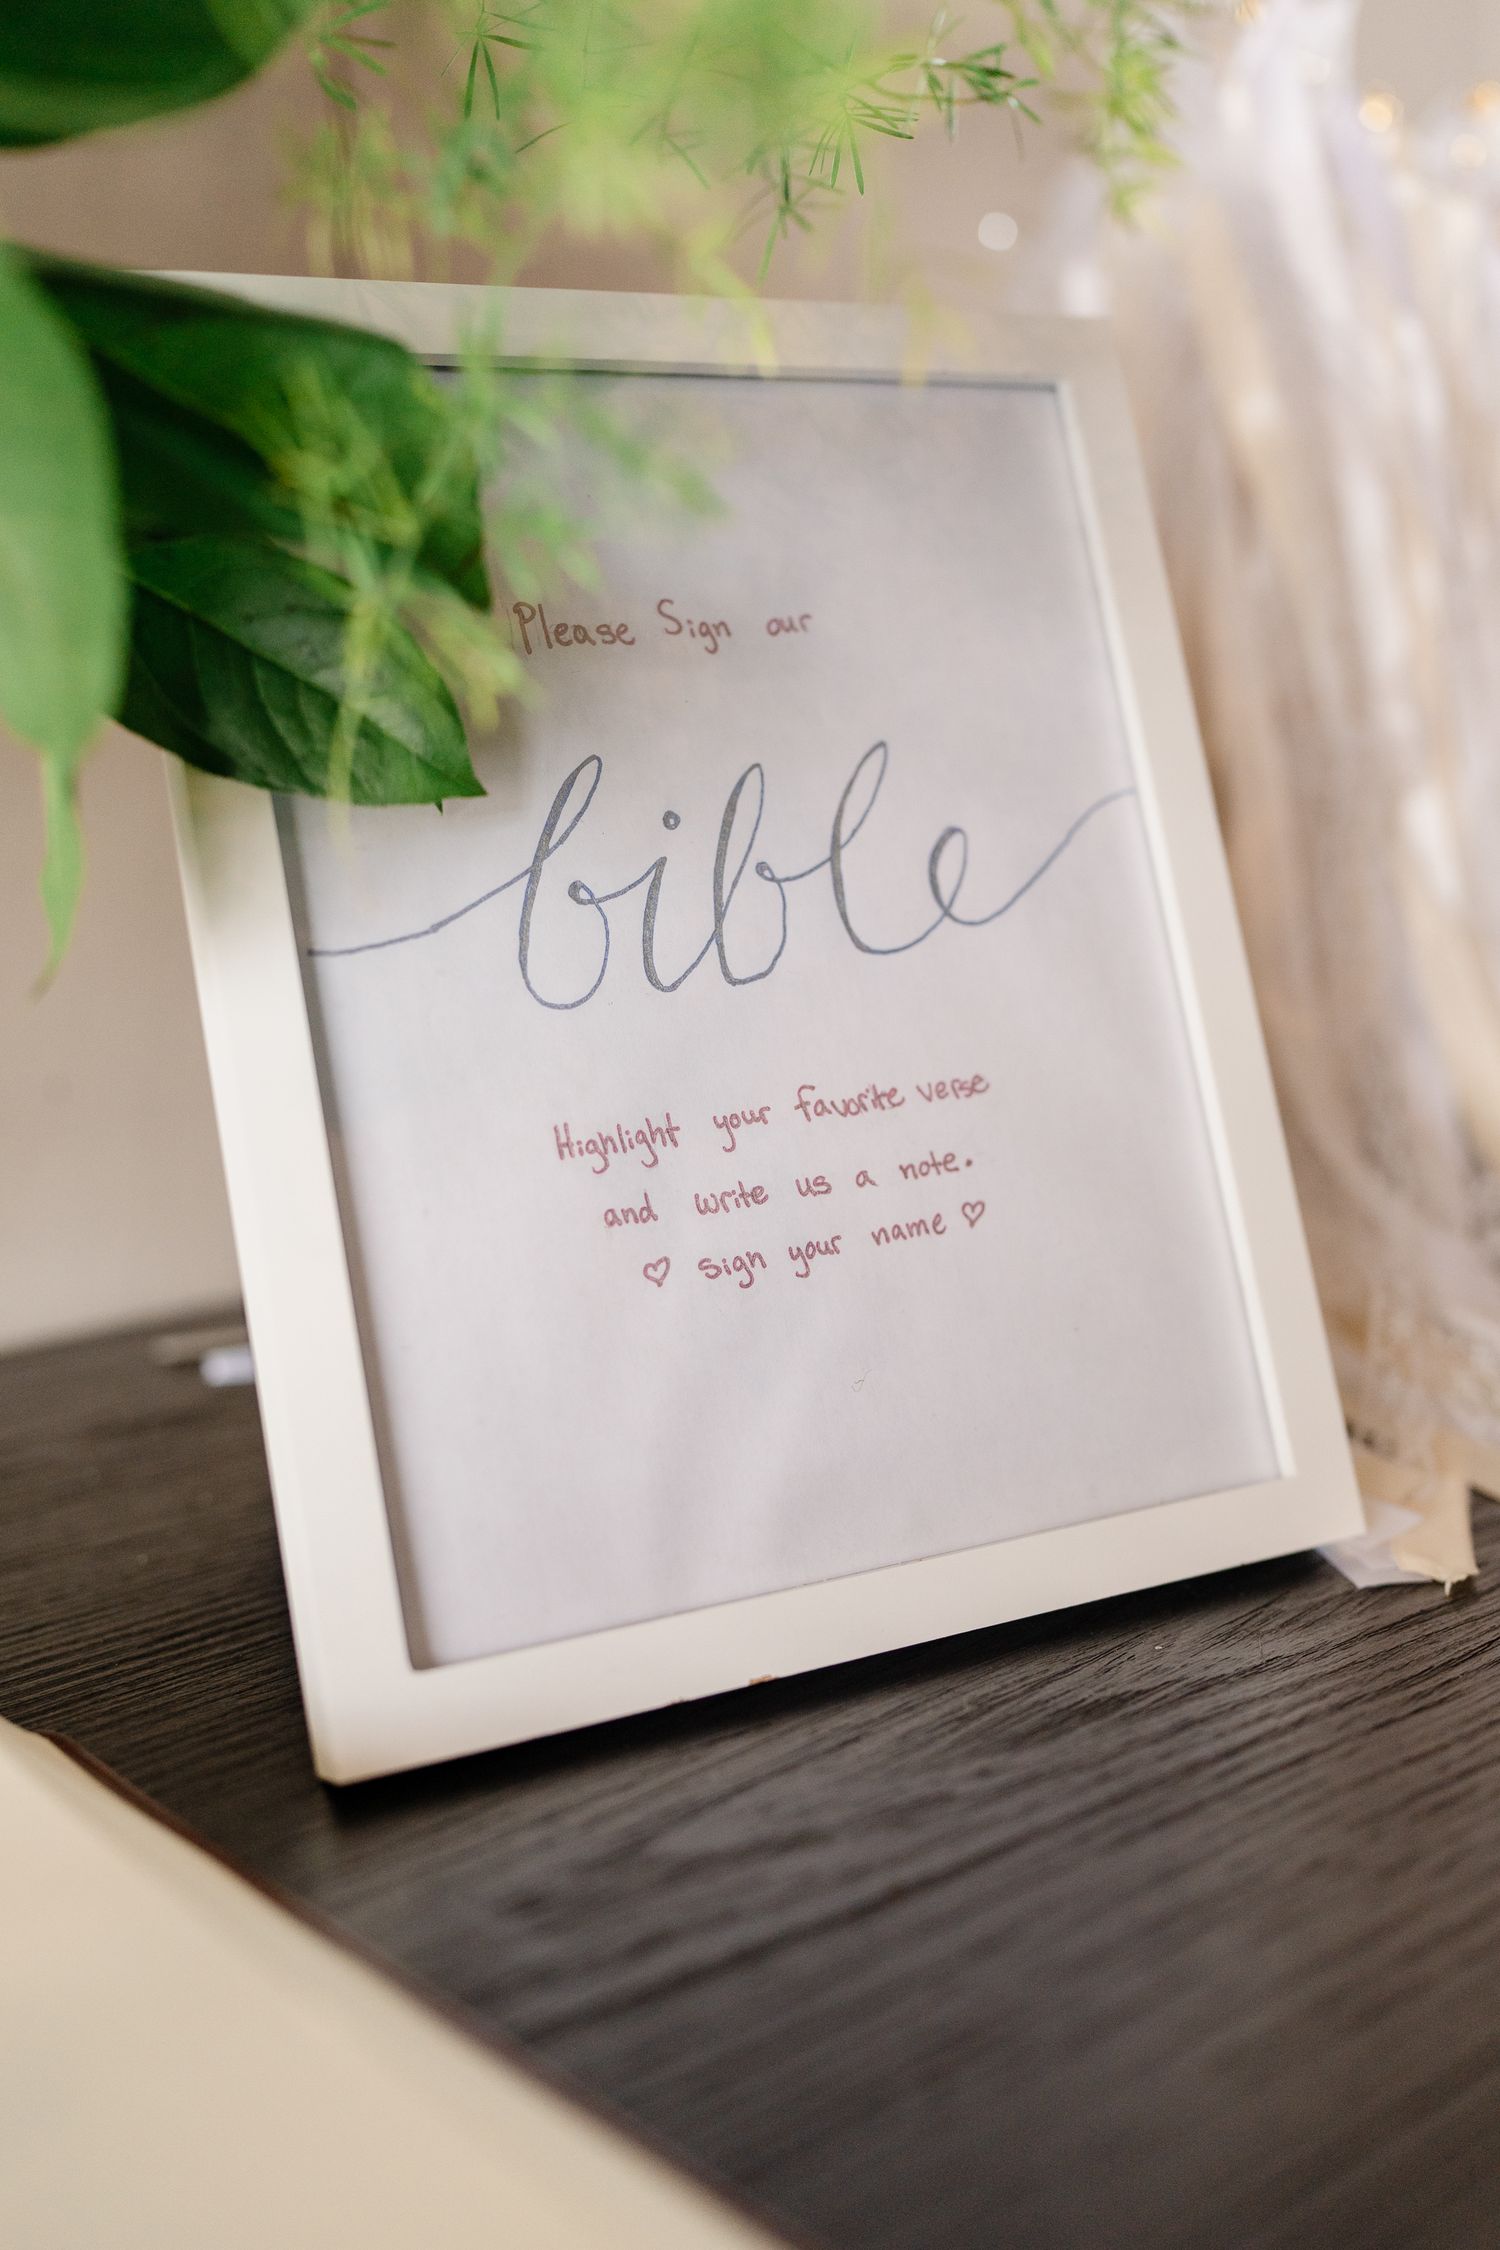 Please Sign our
bible
Highlight your favorite verse
and write us a note.
♡ sign your name ♡